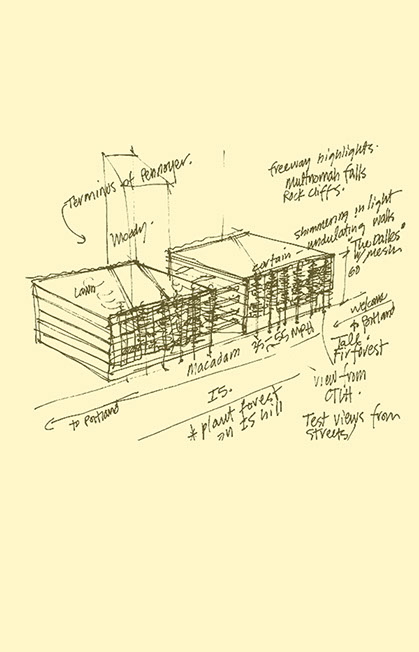 Terminus of Pennoyer.
Moody.
freeway highlights.
Multnomah falls
Rock Cliffs.
shimmering in light
undulating walls
"The Dalles"
w/ mesh
60
curtain
Lawn
welcome
to Portland
Tall
Fir forest
35-55 MPH
Macadam
I5.
* plant forest
on I5 hill
to Portland
View from
Test views from
streets